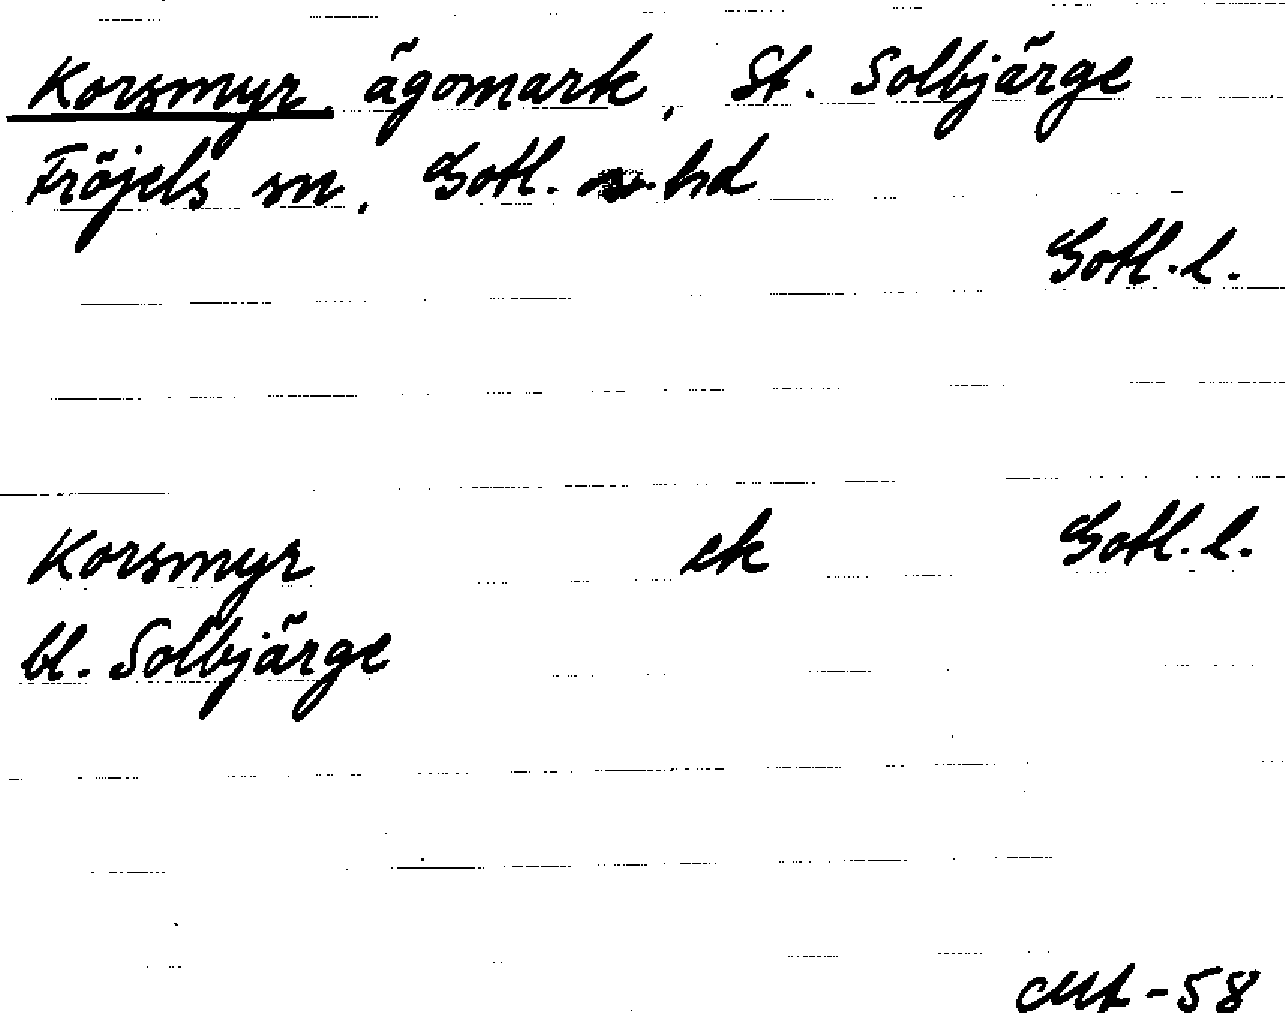 Korsmyr, ägomark, St. Solbjärge
Fröjels sn, Gotl. hd
Gotl. l.
Korsmyr ek Gotl. l.
bl. Solbjärge
-58